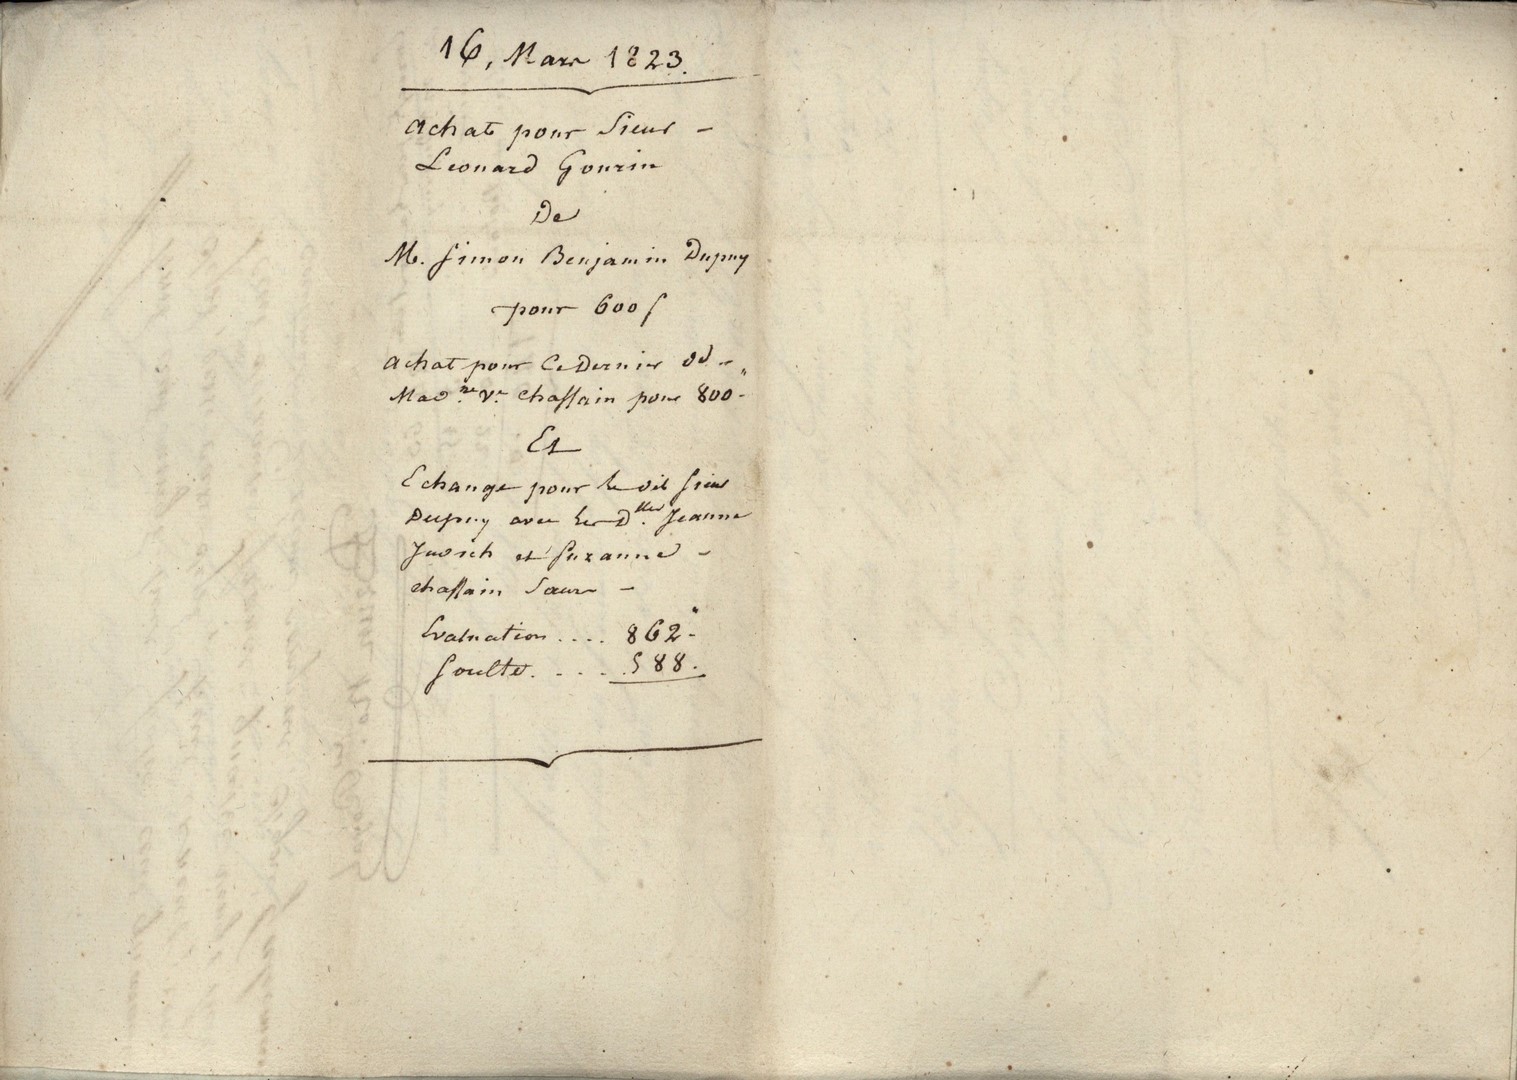 16, Mars 1823.
Achat pour Sieur -
Leonard Gourin
De
M. Simon Benjamin Dupuy
pour 600 f
Achat pour Ce Dernier de -
Mad.me Ve. Chassain pour 800 -
Et
Echange pour le dit Sieur
Dupuy avec les D.lles Jeanne
Judith et Suzanne -
Chassain Sœurs -
Evaluation .... 862 -
Soulte. .... 588.